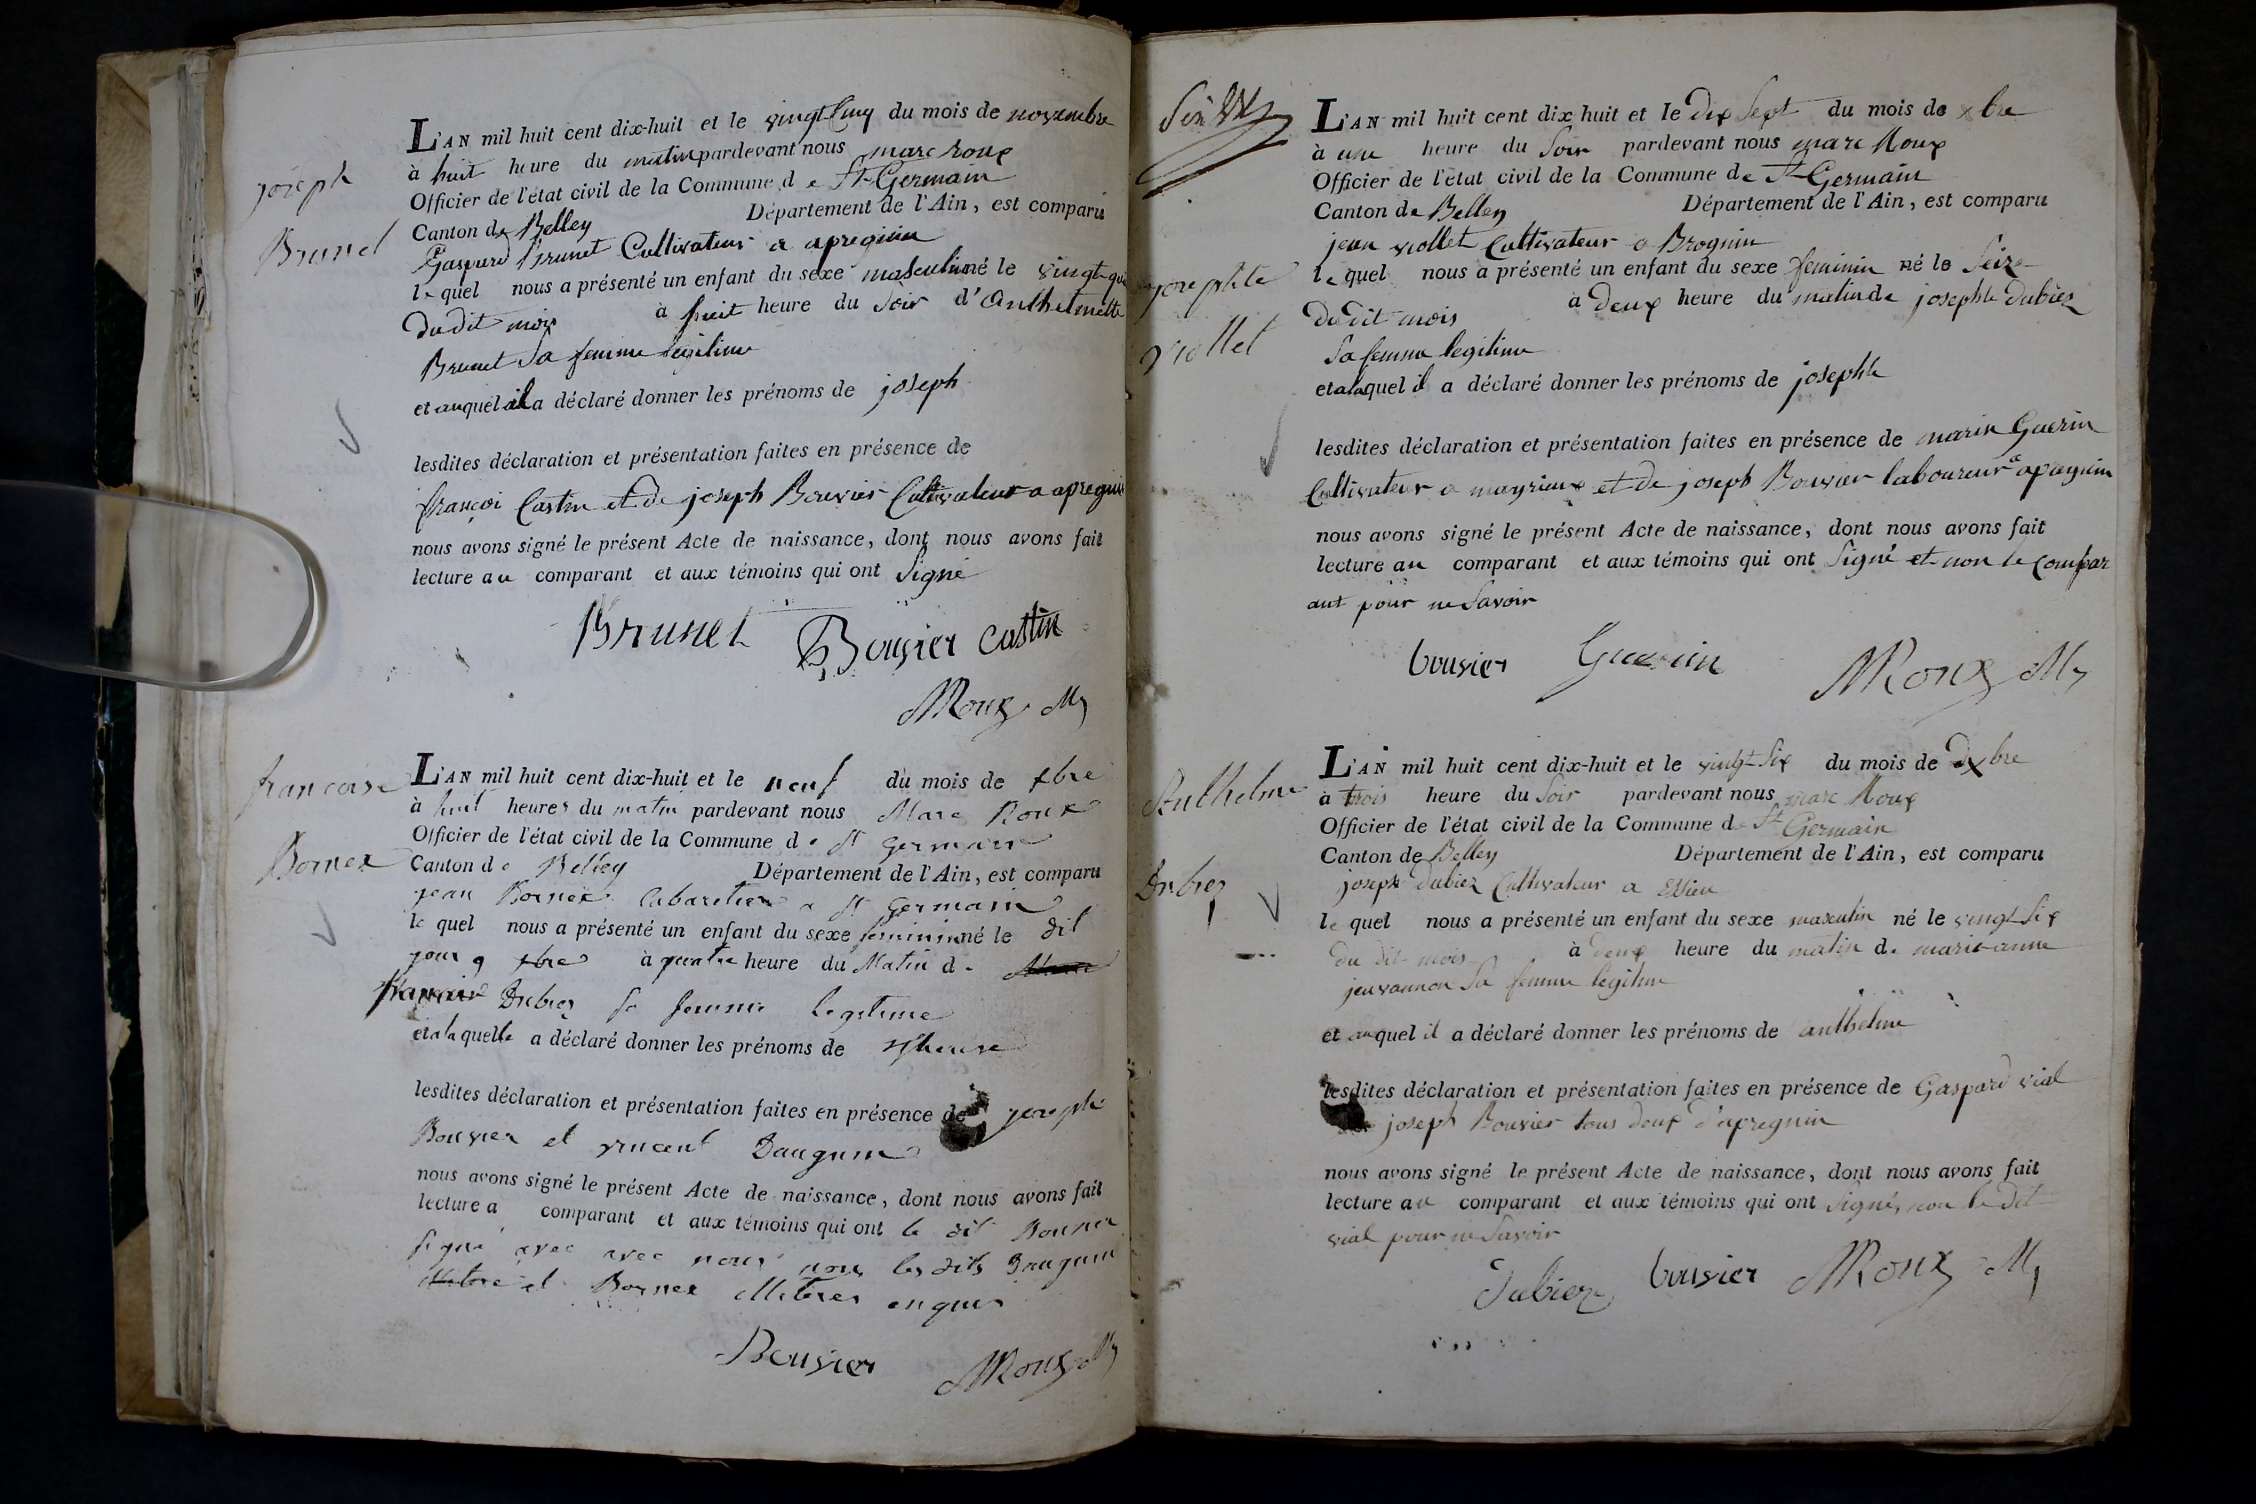 joseph
Brunet
L'AN mil huit cent dix-huit et le vingt Cinq du mois de novembre
à huit heure du matin pardevant nous marc roux
Officier de l'état civil de la Commune de St Germain
Canton de Belley Département de l'Ain, est comparu
Gaspard Brunet Cultivateur a apregnin
le quel nous a présenté un enfant du sexe masculin né le vingt
du dit mois à huit heure du Soir d'Anthelmette
Brunet Sa femme legitime
et auquel il a déclaré donner les prénoms de joseph
lesdites déclaration et présentation faites en présence de
françoi Castin et de joseph Bouvier Cultivateur a apregnin
nous avons signé le présent Acte de naissance, dont nous avons fait
lecture au comparant et aux témoins qui ont Signé
Brunet Bouvier Castin
MRoux M
francoise
Bornex
L'AN mil huit cent dix-huit et le neuf du mois de xbre
à huit heures du matin pardevant nous Marc Roux
Officier de l'état civil de la Commune de St Germain
Canton de Belley Département de l'Ain, est comparu
jean Bornex Cabaretier a St Germain
le quel nous a présenté un enfant du sexe feminin né le dit
jour 9 xbre à quatre heure du Matin de
Dubiez sa femme legitime
et a laquelle a déclaré donner les prénoms de
lesdites déclaration et présentation faites en présence de joseph
Bouvier et vincent Dauguin
nous avons signé le présent Acte de naissance, dont nous avons fait
lecture a comparant et aux témoins qui ont le dit Bouvier
signé avec avec nous non les dits Dauguin
et Bornex enquis
Bouvier MRoux M
josephte
viollet
L'AN mil huit cent dix huit et le dix Sept du mois de xbre
à une heure du Soir pardevant nous marc Roux
Officier de l'état civil de la Commune de St Germain
Canton de Belley Département de l'Ain, est comparu
jean viollet Cultivateur a Brognin
le quel nous a présenté un enfant du sexe feminin né le Seize
du dit mois à deux heure du matin de josephte Dubiez
Sa femme legitime
et a laquel il a déclaré donner les prénoms de josephte
lesdites déclaration et présentation faites en présence de marin Guerin
Cultivateur a mayrieux et de joseph Bouvier laboureur a apregnin
nous avons signé le présent Acte de naissance, dont nous avons fait
lecture au comparant et aux témoins qui ont Signé et non le Compar
ant pour ne Savoir
bouvier Guerin MRoux M
Anthelme
Dubiez
L'AN mil huit cent dix-huit et le vingt Six du mois de dxbre
à trois heure du Soir pardevant nous marc Roux
Officier de l'état civil de la Commune de St Germain
Canton de Belley Département de l'Ain, est comparu
joseph Dubiez Cultivateur a Essieu
le quel nous a présenté un enfant du sexe masculin né le vingt Six
du dit mois à deux heure du matin de marie anne
jeuvannon Sa femme legitime
et auquel il a déclaré donner les prénoms de anthelme
lesdites déclaration et présentation faites en présence de Gaspard vial
joseph Bouvier tous deux d'apregnin
nous avons signé le présent Acte de naissance, dont nous avons fait
lecture au comparant et aux témoins qui ont Signé, non le dit
vial pour ne Savoir
Dubiez bouvier MRoux M